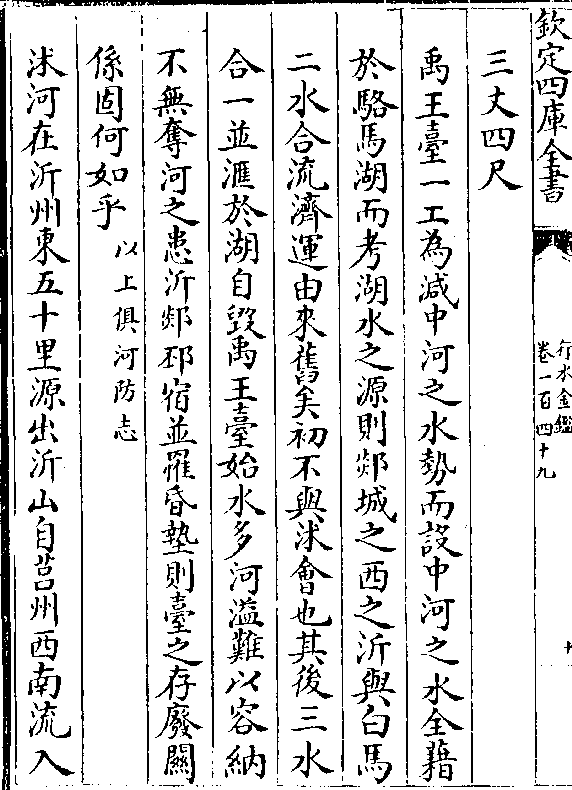 欽定四庫全書
行水金鑑
卷一百四十九
三丈四尺
禹王臺一工為減中河之水勢而設中河之水全藉
於駱馬湖而考湖水之源則郯城之西之沂與白馬
二水合流濟運由來舊矣初不與沭會也其後三水
合一並滙於湖自毀禹王臺始水多河溢難以容納
不無奪河之患沂郯邳宿並罹昏墊則臺之存廢關
係固何如乎以上俱河防志
沭河在沂州東五十里源出沂山自莒州西南流入